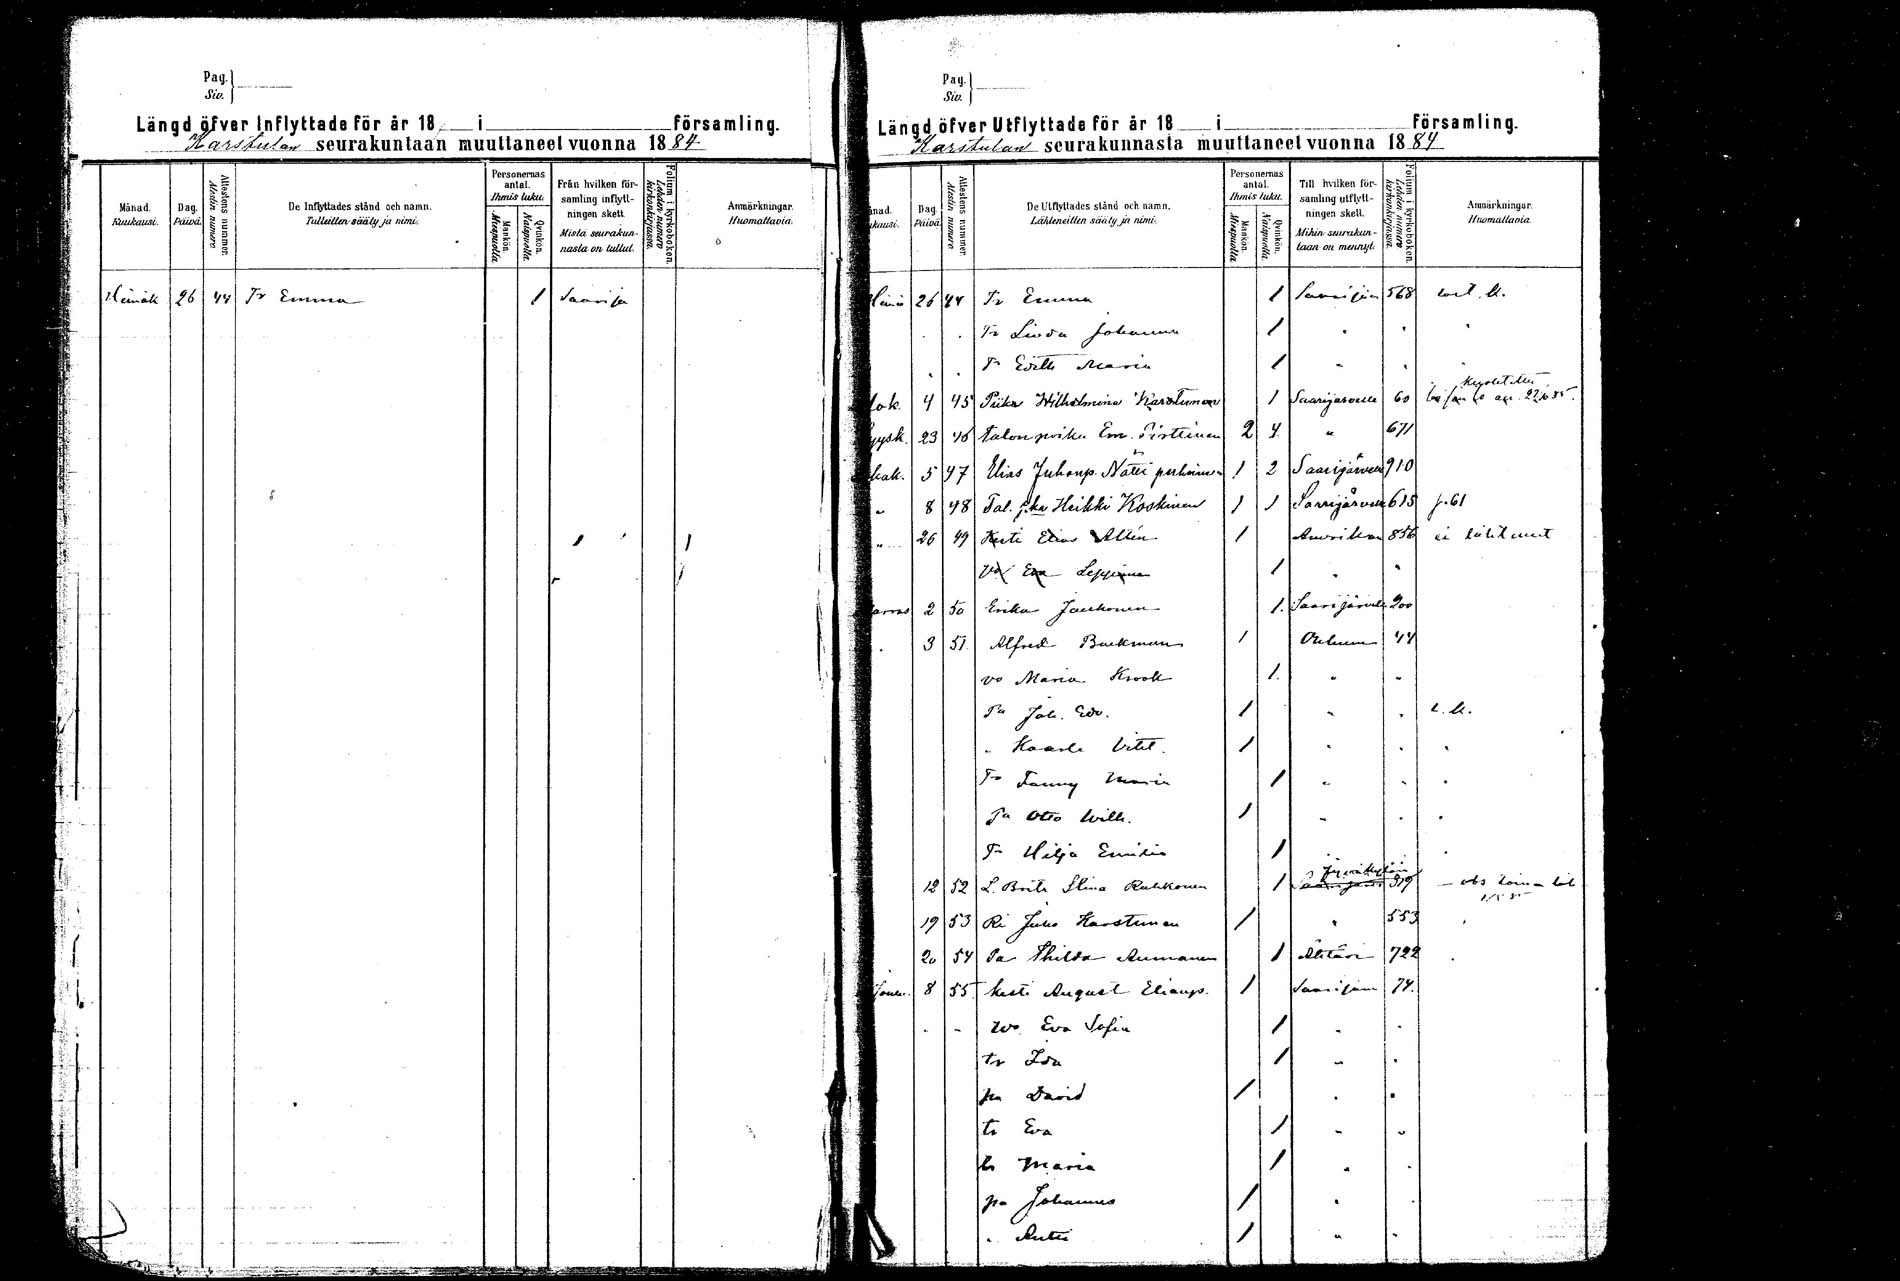 Pag.
Siv.
Längd öfver Inflyttade för år 18 i församling.
Karstulan seurakuntaan muuttaneet vuonna 1884
Månad. Kuukausi.
Dag. Päivä.
Attestens nummer. Atestin numero
De Inflyttades stånd och namn. Tulleitten sääty ja nimi.
Personernas antal. Ihmis luku.
Mankön. Miespuolia
Qvinkön. Naispuolia.
Från hvilken församling inflyttningen skett. Mistä seurakunnasta on tullut.
Folium i kyrkoboken. Lehden numero kirkonkirjassa.
Anmärkningar. Huomattavia.
Heinäk 26 44 Tr Emma 1 Saarijä
Pag.
Siv.
Längd öfver Utflyttade för år 18 i församling.
Karstulan seurakunnasta muuttaneet vuonna 1884
Månad. Kuukausi.
Dag. Päivä.
Attestens nummer. Atestin numero
De Utflyttades stånd och namn. Lähteneitten sääty ja nimi.
Personernas antal. Ihmis luku.
Mankön. Miespuolia
Qvinkön. Naispuolia.
Till hvilken församling utflyttningen skett. Mihin seurakuntaan on mennyt.
Folium i kyrkoboken. Lehden numero kirkonkirjassa.
Anmärkningar. Huomattavia.
Heinä 26 44 Tr Emma 1 Saarijär 568
Tr Linda Johanna 1 " " "
Tr Edith Maria 1 " " "
lok. 4 45 Piika Wilhelmina Karstunen 1 Saarijärvelle 60
Syysk. 23 46 talon poika Em. Pirttinen 2 4 " 671
Lokak. 5 47 Elias Juhanp. Nätti perheineen 1 2 Saarijärvelle 910
" 8 48 Tal. pka Heikki Koskinen 1 1 Saarijärvelle 615 p. 61
" 26 49 Kesti Elias Allén 1 Amerikan 856 ei lähteneet
vo Eva Leppänen 1 " "
Marras 2 50 Erika Jauhonen 1 Saarijärvelle 200
" 3 51 Alfred Backman 1 Ouluun 44
vo Maria Krook 1 " "
Pa Joh. Edv. 1 " "
" Kaarle 1 " " "
Tr Fanny Maria 1 " " "
Pa Otto Wilh. 1 " " "
Tr Hilja Emilia 1 " "
12 52 L. Brita Stina Ruhkonen 1 Jyväskylän 319
19 53 Re Juho Karstunen 1 " 553
20 54 Pa Thilda Aumanen 1 Ähtäri 722
Joulu. 8 55 kesti August Eliasp. 1 Saarijärv 74
" " vo Eva Sofia 1 " "
tr Ida 1 " "
pa David 1 " "
tr Eva 1 " "
tr Maria 1 " "
pa Johannes 1 " "
" Antti 1 " "